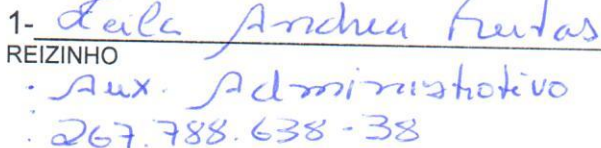 1- Leila Andrea Freitas
REIZINHO
. Aux. Administrativo
. 267.788.638-38